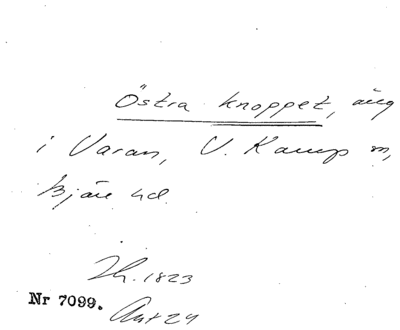 Östra knoppet, äng
i Varan, V. Karup sn,
Bjäre hd.
Jh. 1823
Nr 7099.
Akt 24